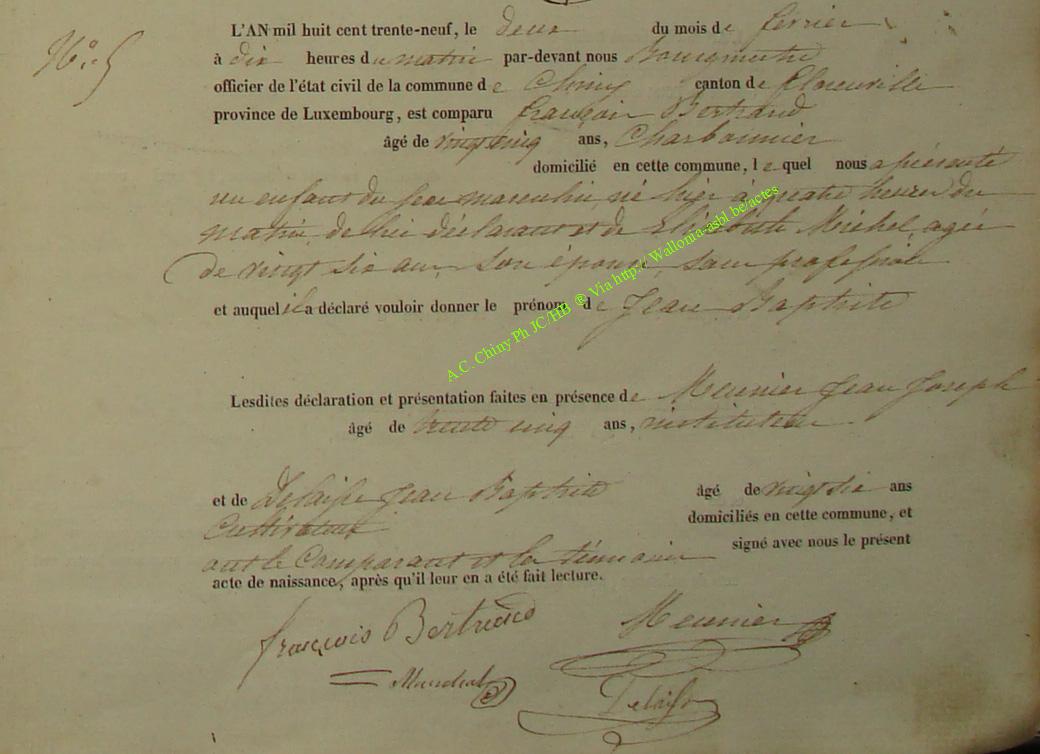 N° 5
L'AN mil huit cent trente-neuf, le deux du mois de février
à dix heures du matin par-devant nous Bourgmestre
officier de l'état civil de la commune de Chiny canton de Florenville
province de Luxembourg, est comparu françois Bertrand
âgé de vingt cinq ans, Charbonnier
domicilié en cette commune, le quel nous a présenté
un enfant du sexe masculin né hier à quatre heures du
matin, de lui déclarant et de Michel, agée
de vingt six ans son épouse, sans profession
et auquel il a déclaré vouloir donner le prénom de Jean Baptiste
Lesdites déclaration et présentation faites en présence de Meunier Jean Joseph
âgé de trente cinq ans, instituteur
et de Delaisse Jean Baptiste âgé de vingt six ans
Cultivateur domiciliés en cette commune, et
ont le Comparant et les témoins signé avec nous le présent
acte de naissance, après qu'il leur en a été fait lecture.
françois Bertrand Meunier
Delaisse
A.C. Chiny Ph JC/HB ® Via http://Wallonia-asbl.be/actes